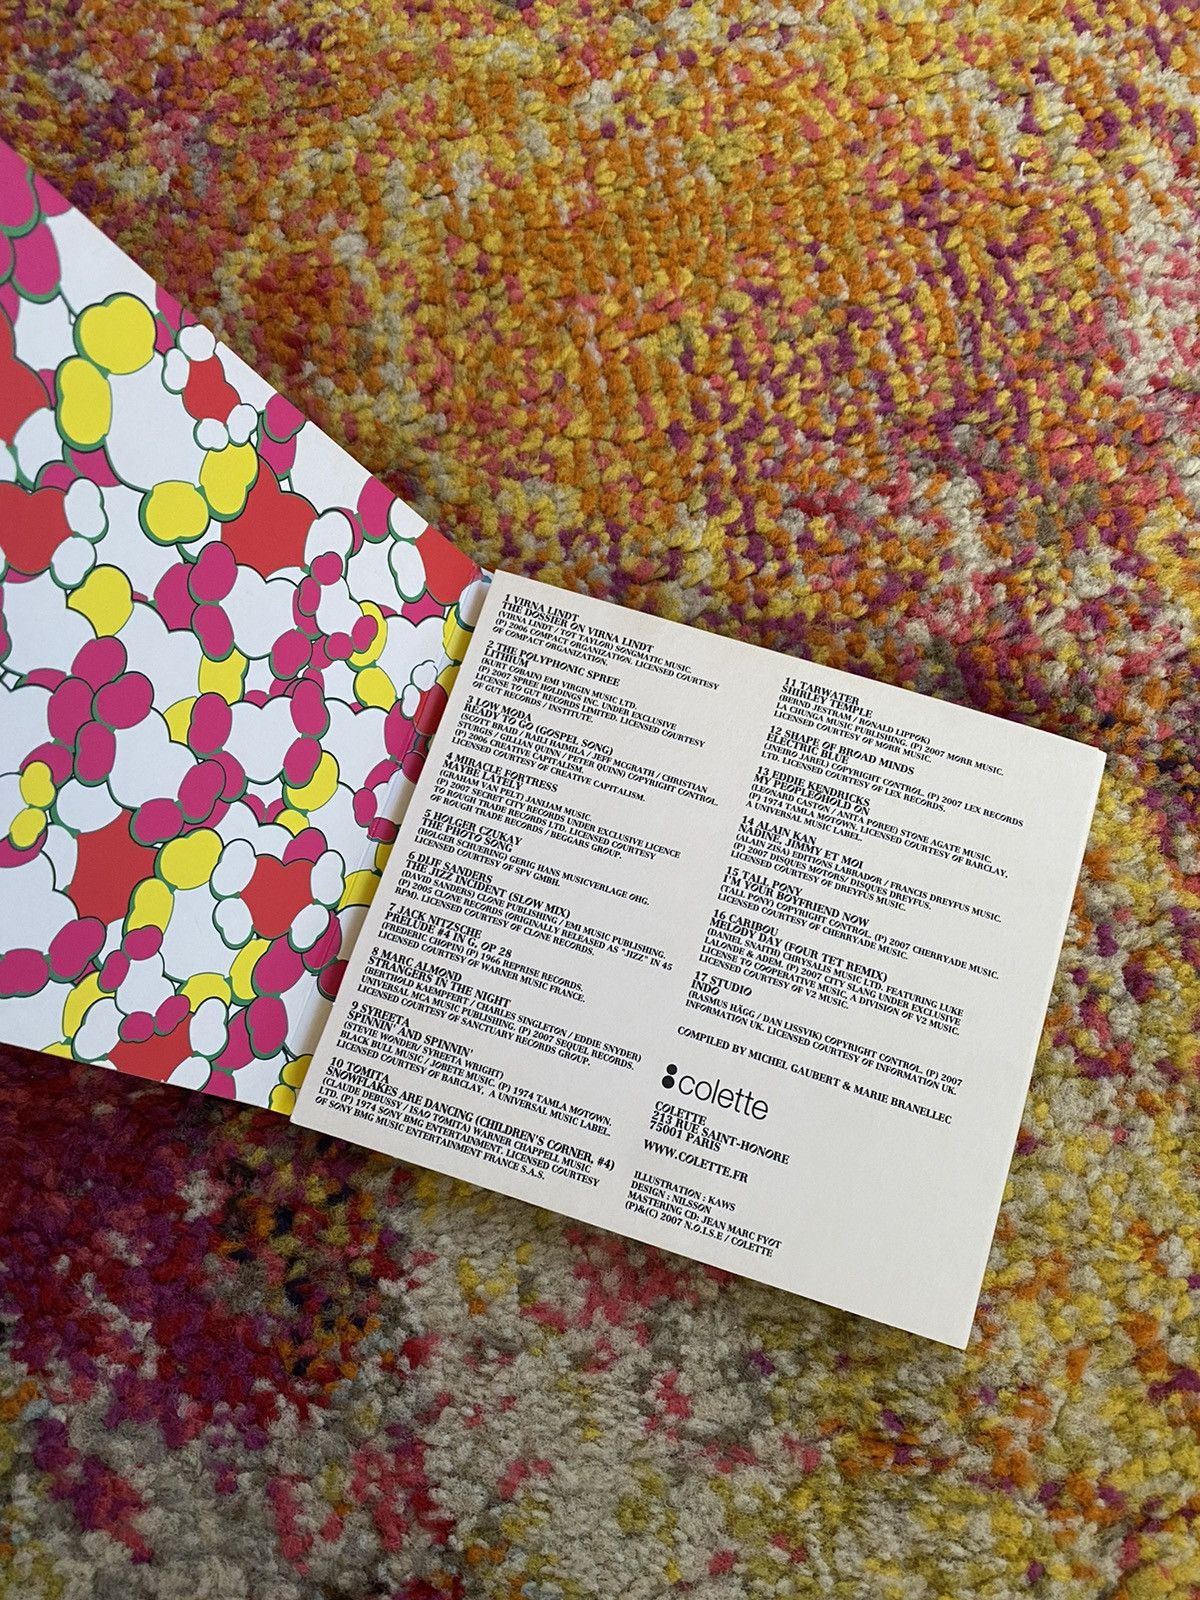 1 VIRNA LINDT
THE DOSSIER ON VIRNA LINDT
(VIRNA LINDT / TOT TAYLOR) SONGMATIC MUSIC.
(P) 2006 COMPACT ORGANIZATION. LICENSED COURTESY
OF COMPACT ORGANIZATION.
2 THE POLYPHONIC SPREE
LITHIUM
(KURT COBAIN) EMI VIRGIN MUSIC LTD.
(P) 2007 SPREE HOLDINGS INC. UNDER EXCLUSIVE
LICENSE TO GUT RECORDS LIMITED. LICENSED COURTESY
OF GUT RECORDS / INSTITUTE.
3 LOW MODA
READY TO GO (GOSPEL SONG)
(SCOTT BRAID / RAILI HAIMILA / JEFF MCGRATH / CHRISTIAN
STURGIS / GILLIAN QUINN / PETER QUINN) COPYRIGHT CONTROL.
(P) 2006 CREATIVE CAPITALISM.
LICENSED COURTESY OF CREATIVE CAPITALISM.
4 MIRACLE FORTRESS
MAYBE LATELY
(GRAHAM VAN PELT) JANJAM MUSIC.
(P) 2007 SECRET CITY RECORDS UNDER EXCLUSIVE LICENCE
TO ROUGH TRADE RECORDS LTD. LICENSED COURTESY
OF ROUGH TRADE RECORDS / BEGGARS GROUP.
5 HOLGER CZUKAY
THE PHOTO SONG
(HOLGER SCHUERING) GERIG HANS MUSICVERLAGE OHG.
LICENSED COURTESY OF SPV GMBH.
6 DLJF SANDERS
THE JIZZ INCIDENT (SLOW MIX)
(DAVID SANDERS) CLONE PUBLISHING / EMI MUSIC PUBLISHING.
(P) 2005 CLONE RECORDS (ORIGINALLY RELEASED AS "JIZZ" IN 45
RPM). LICENSED COURTESY OF CLONE RECORDS.
7 JACK NITZSCHE
PRELUDE #4 IN G, OP 28
(FREDERIC CHOPIN) (P) 1966 REPRISE RECORDS.
LICENSED COURTESY OF WARNER MUSIC FRANCE.
8 MARC ALMOND
STRANGERS IN THE NIGHT
(BERTHOLD KAEMPFERT / CHARLES SINGLETON / EDDIE SNYDER)
UNIVERSAL MCA MUSIC PUBLISHING. (P) 2007 SEQUEL RECORDS.
LICENSED COURTESY OF SANCTUARY RECORDS GROUP.
9 SYREETA
SPINNIN' AND SPINNIN'
(STEVIE WONDER/ SYREETA WRIGHT)
BLACK BULL MUSIC / JOBETE MUSIC. (P) 1974 TAMLA MOTOWN.
LICENSED COURTESY OF BARCLAY, A UNIVERSAL MUSIC LABEL.
10 TOMITA
SNOWFLAKES ARE DANCING (CHILDREN'S CORNER, #4)
(CLAUDE DEBUSSY / ISAO TOMITA) WARNER CHAPPELL MUSIC
LTD. (P) 1974 SONY BMG ENTERTAINMENT. LICENSED COURTESY
OF SONY BMG MUSIC ENTERTAINMENT FRANCE S.A.S.
11 TARWATER
SHIRLEY TEMPLE
(BERND JESTRAM / RONALD LIPPOK)
LA CHUNGA MUSIC PUBLISHING. (P) 2007 MORR MUSIC.
LICENSED COURTESY OF MORR MUSIC.
12 SHAPE OF BROAD MINDS
ELECTRIC BLUE
(JNEIRO JAREL) COPYRIGHT CONTROL. (P) 2007 LEX RECORDS
LTD. LICENSED COURTESY OF LEX RECORDS.
13 EDDIE KENDRICKS
MY PEOPLE...HOLD ON
(LEONARD CASTON / ANITA POREE) STONE AGATE MUSIC.
(P) 1974 TAMLA MOTOWN. LICENSED COURTESY OF BARCLAY,
A UNIVERSAL MUSIC LABEL.
14 ALAIN KAN
NADINE, JIMMY ET MOI
(ALAIN ZISA) EDITIONS LABRADOR / FRANCIS DREYFUS MUSIC.
(P) 2007 DISQUES MOTORS/ DISQUES DREYFUS.
LICENSED COURTESY OF DREYFUS MUSIC.
15 TALL PONY
I'M YOUR BOYFRIEND NOW
(TALL PONY) COPYRIGHT CONTROL. (P) 2007 CHERRYADE MUSIC.
LICENSED COURTESY OF CHERRYADE MUSIC.
16 CARIBOU
MELODY DAY (FOUR TET REMIX)
(DANIEL SNAITH) CHRYSALIS MUSIC LTD. FEATURING LUKE
LALONDE & ADEM. (P) 2007 CITY SLANG UNDER EXCLUSIVE
LICENSE TO COOPERATIVE MUSIC, A DIVISION OF V2 MUSIC.
LICENSED COURTESY OF V2 MUSIC.
17 STUDIO
INDO
(RASMUS HÄGG / DAN LISSVIK) COPYRIGHT CONTROL. (P) 2007
INFORMATION UK. LICENSED COURTESY OF INFORMATION UK.
COMPILED BY MICHEL GAUBERT & MARIE BRANELLEC
colette
COLETTE
213 RUE SAINT-HONORE
75001 PARIS
WWW.COLETTE.FR
ILLUSTRATION : KAWS
DESIGN : NILSSON
MASTERING CD: JEAN MARC FYOT
(P)&(C) 2007 N.O.I.S.E / COLETTE